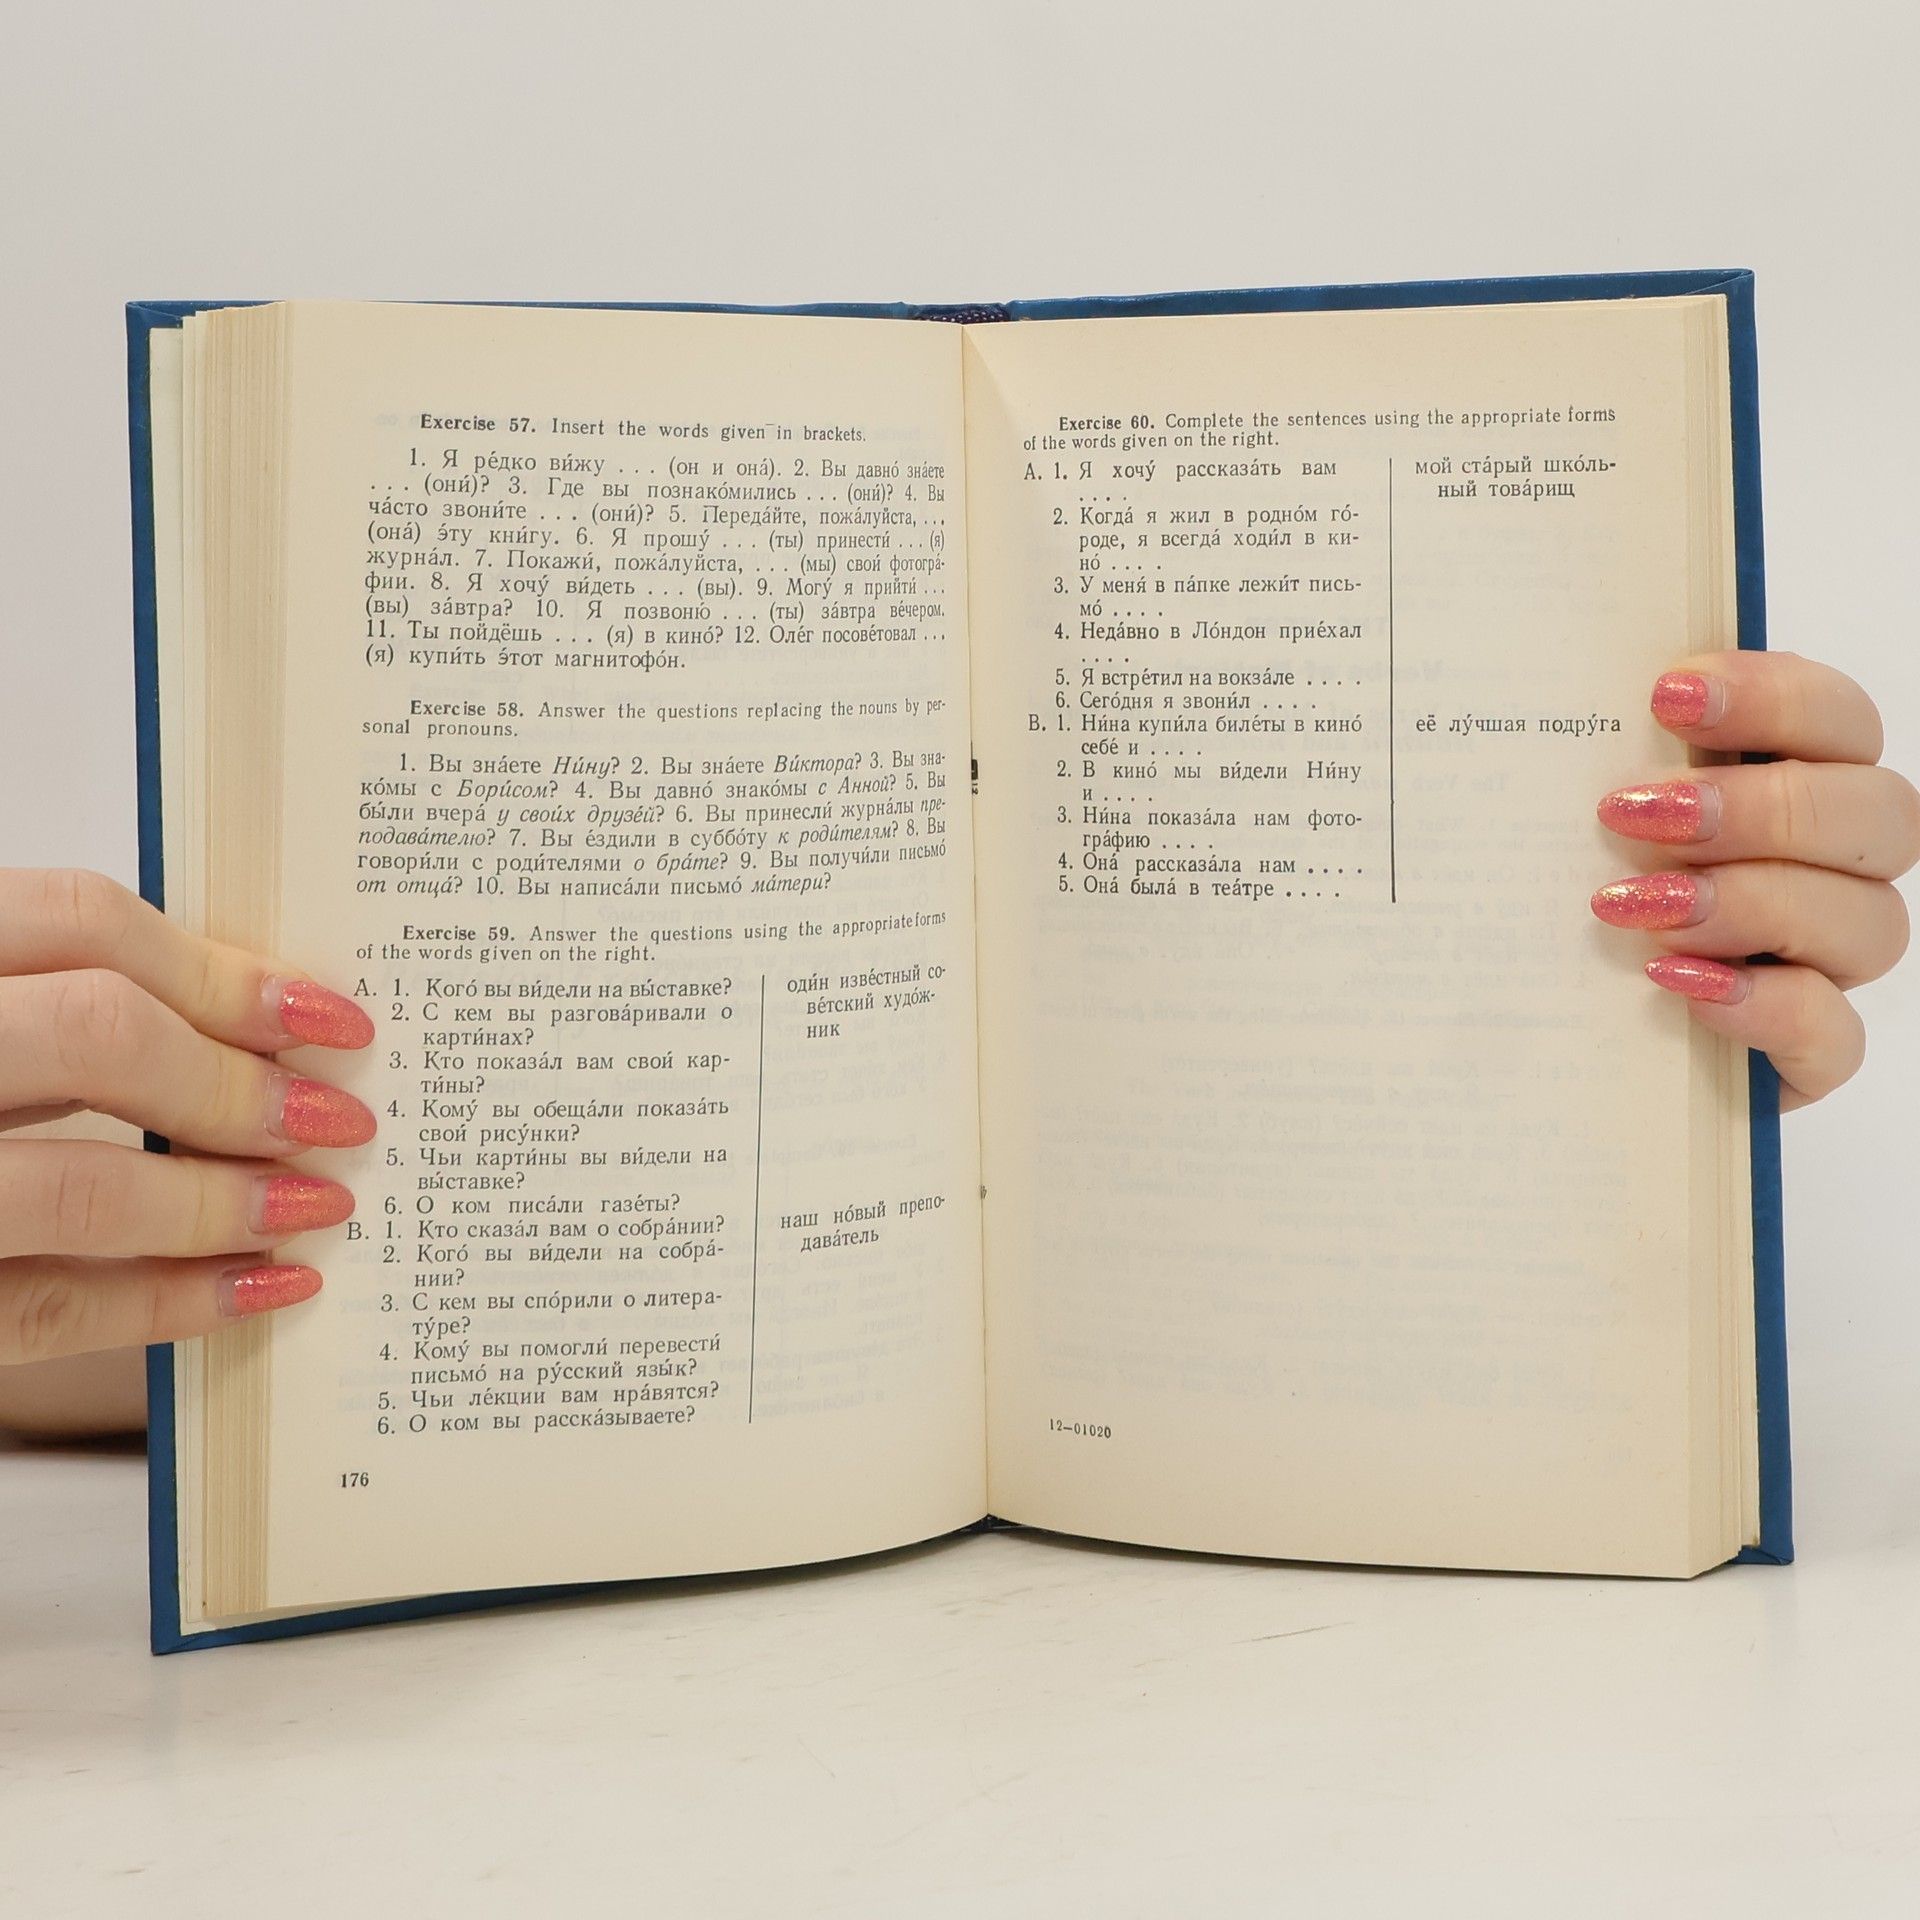 Exercise 57. Insert the words given in brackets.
1. Я ре́дко ви́жу . . . (он и она́). 2. Вы давно́ зна́ете
. . . (они́)? 3. Где вы познако́мились . . . (они́)? 4. Вы
ча́сто звони́те . . . (они́)? 5. Переда́йте, пожа́луйста, . . .
(она́) э́ту кни́гу. 6. Я прошу́ . . . (ты) принести́ . . . (я)
журна́л. 7. Покажи́, пожа́луйста, . . . (мы) свои́ фотогра́-
фии. 8. Я хочу́ ви́деть . . . (вы). 9. Могу́ я прийти́ . . .
(вы) за́втра? 10. Я позвоню́ . . . (ты) за́втра ве́чером.
11. Ты пойдёшь . . . (я) в кино́? 12. Оле́г посове́товал . . .
(я) купи́ть э́тот магнитофо́н.
Exercise 58. Answer the questions replacing the nouns by per-
sonal pronouns.
1. Вы зна́ете Ни́ну? 2. Вы зна́ете Ви́ктора? 3. Вы зна-
ко́мы с Бори́сом? 4. Вы давно́ знако́мы с Анной? 5. Вы
бы́ли вчера́ у свои́х друзе́й? 6. Вы принесли́ журна́лы пре-
подава́телю? 7. Вы е́здили в суббо́ту к роди́телям? 8. Вы
говори́ли с роди́телями о бра́те? 9. Вы получи́ли письмо́
от отца́? 10. Вы написа́ли письмо́ ма́тери?
Exercise 59. Answer the questions using the appropriate forms
of the words given on the right.
А. 1. Кого́ вы ви́дели на вы́ставке?
2. С кем вы разгова́ривали о
карти́нах?
3. Кто показа́л вам свои́ кар-
ти́ны?
4. Кому́ вы обеща́ли показа́ть
свои́ рису́нки?
5. Чьи карти́ны вы ви́дели на
вы́ставке?
6. О ком писа́ли газе́ты?
оди́н изве́стный со-
ве́тский худо́ж-
ник
В. 1. Кто сказа́л вам о собра́нии?
2. Кого́ вы ви́дели на собра́-
нии?
3. С кем вы спо́рили о литера-
ту́ре?
4. Кому́ вы помогли́ перевести́
письмо́ на ру́сский язы́к?
5. Чьи ле́кции вам нра́вятся?
6. О ком вы расска́зываете?
наш но́вый препо-
дава́тель
176
Exercise 60. Complete the sentences using the appropriate forms
of the words given on the right.
А. 1. Я хочу́ рассказа́ть вам
. . . .
2. Когда́ я жил в родно́м го́-
роде, я всегда́ ходи́л в ки-
но́ . . . .
3. У меня́ в па́пке лежи́т пись-
мо́ . . . .
4. Неда́вно в Ло́ндон прие́хал
. . . .
5. Я встре́тил на вокза́ле . . . .
6. Сего́дня я звони́л . . . .
мой ста́рый шко́ль-
ный това́рищ
В. 1. Ни́на купи́ла биле́ты в кино́
себе́ и . . . .
2. В кино́ мы ви́дели Ни́ну
и . . . .
3. Ни́на показа́ла нам фото-
гра́фию . . . .
4. Она́ рассказа́ла нам . . . .
5. Она́ была́ в теа́тре . . . .
её лу́чшая подру́га
12—01020